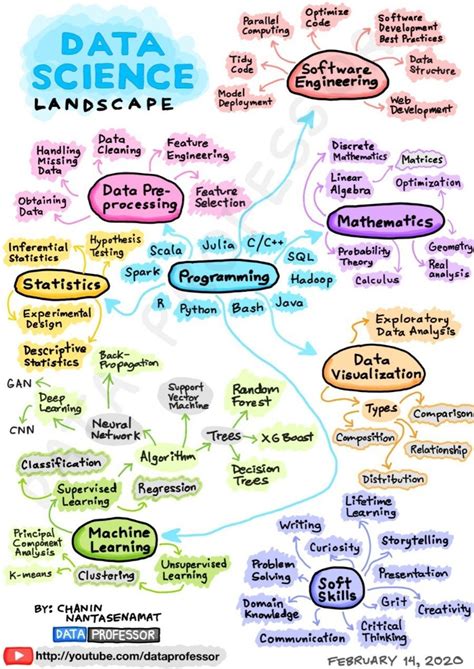 DATA
SCIENCE
LANDSCAPE
Parallel
Computing
Optimize
Code
Software
Development
Best Practices
Tidy
Code
Software
Engineering
Data
Structure
Model
Deployment
Web
Development
Handling
Missing
Data
Data
Cleaning
Feature
Engineering
Obtaining
Data
Data Pre-
processing
Feature
Selection
Discrete
Mathematics
Matrices
Linear
Algebra
Optimization
Mathematics
Probability
Theory
Calculus
Geometry
Real
analysis
Inferential
Statistics
Hypothesis
Testing
Statistics
Experimental
Design
Descriptive
Statistics
Scala
Julia
C/C++
SQL
Spark
Programming
Hadoop
R
Python
Bash
Java
Exploratory
Data Analysis
Data
Visualization
Types
Comparison
Composition
Relationship
Distribution
GAN
Deep
Learning
CNN
Back-
Propagation
Neural
Network
Support
Vector
Machine
Random
Forest
Trees
XG Boost
Decision
Trees
Algorithm
Classification
Supervised
Learning
Regression
Principal
Component
Analysis
Machine
Learning
K-means
Clustering
Unsupervised
Learning
Lifetime
Learning
Writing
Curiosity
Storytelling
Problem
Solving
Soft
Skills
Presentation
Domain
Knowledge
Grit
Creativity
Communication
Critical
Thinking
BY: CHANIN
NANTASENAMAT
DATA PROFESSOR
http://youtube.com/dataprofessor
FEBRUARY 14, 2020